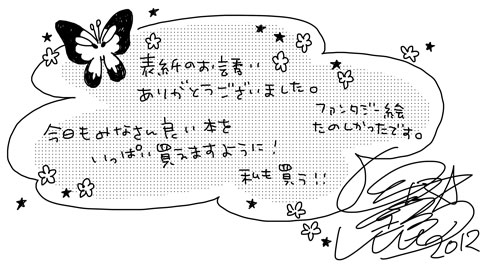 表紙のお誘い
ありがとうございました。
ファンタジー絵
たのしかったです。
今日もみなさん良い本を
いっぱい買えますように!
私も買う!!
2012